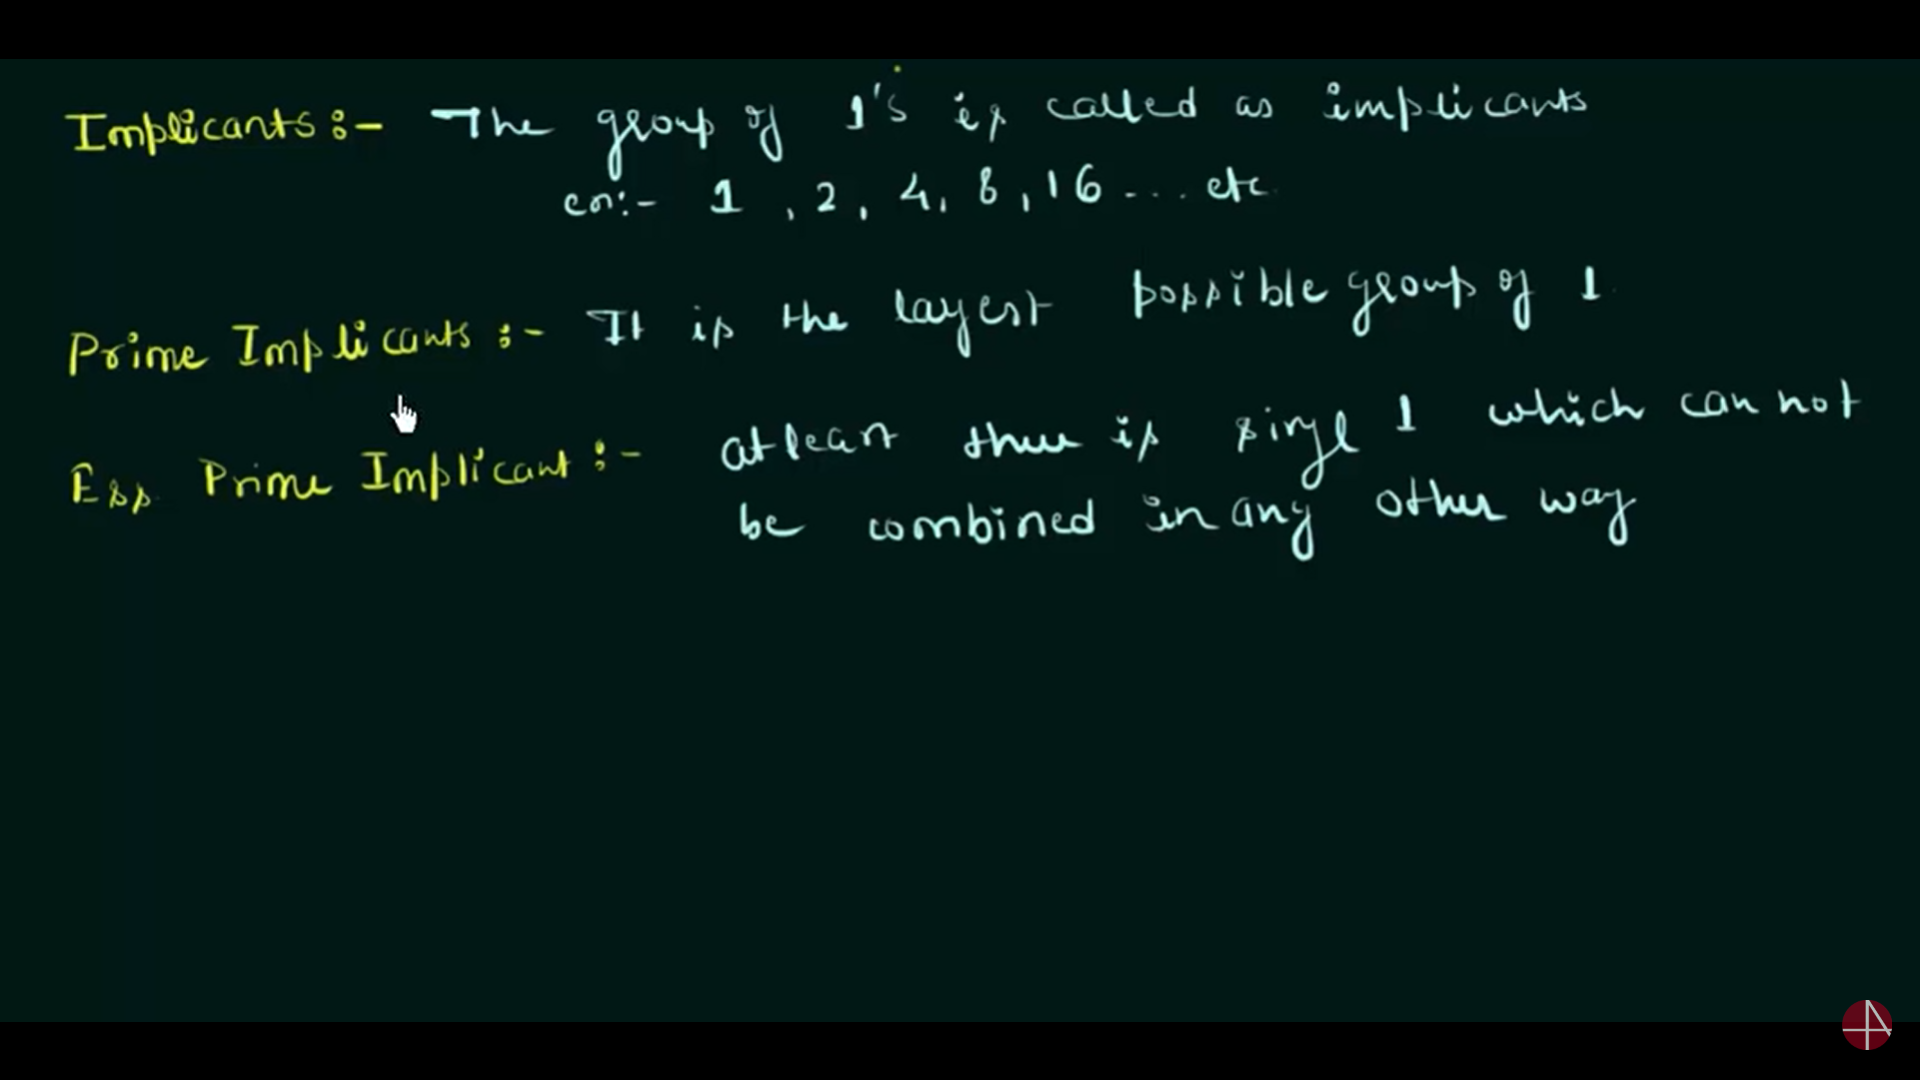 Implicants :- The group of 1's is called as implicants
ex:- 1 , 2, 4, 8, 16 ... etc
Prime Implicants :- It is the largest possible group of 1
Ess Prime Implicant :- atleast there is single 1 which can not
be combined in any other way